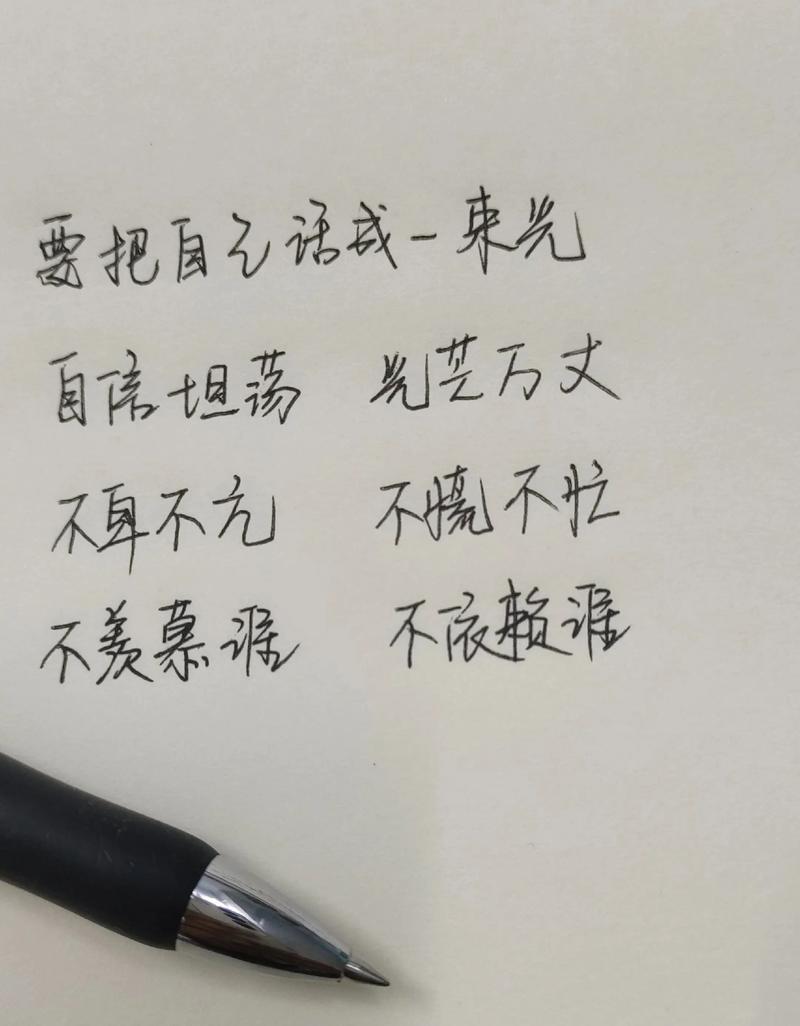 要把自己活成一束光
自信坦荡 光芒万丈
不卑不亢 不慌不忙
不羡慕谁 不依赖谁